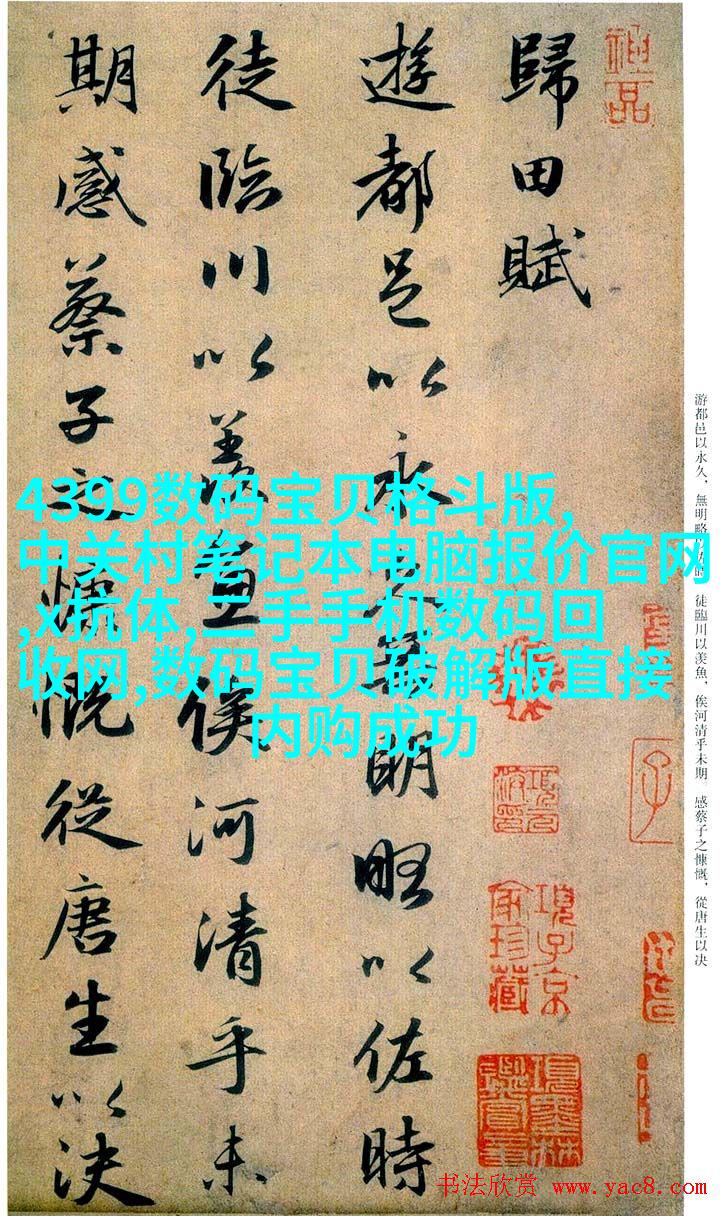 歸田賦
遊都邑以永久無明略以佐時
徒臨川以羨魚俟河清乎未
期感蔡子之慷慨從唐生以決
神品
子
項子京家珍藏
項墨林鑑賞章
4399数码宝贝格斗版,
中关村笔记本电脑报价官网
,x抗体,二手手机数码回
收网,数码宝贝破解版直接
内购成功
游都邑以永久，無明略 徒臨川以羨魚，俟河清乎未期。感蔡子之慷慨，從唐生以决
书法欣赏 www.yac8.com